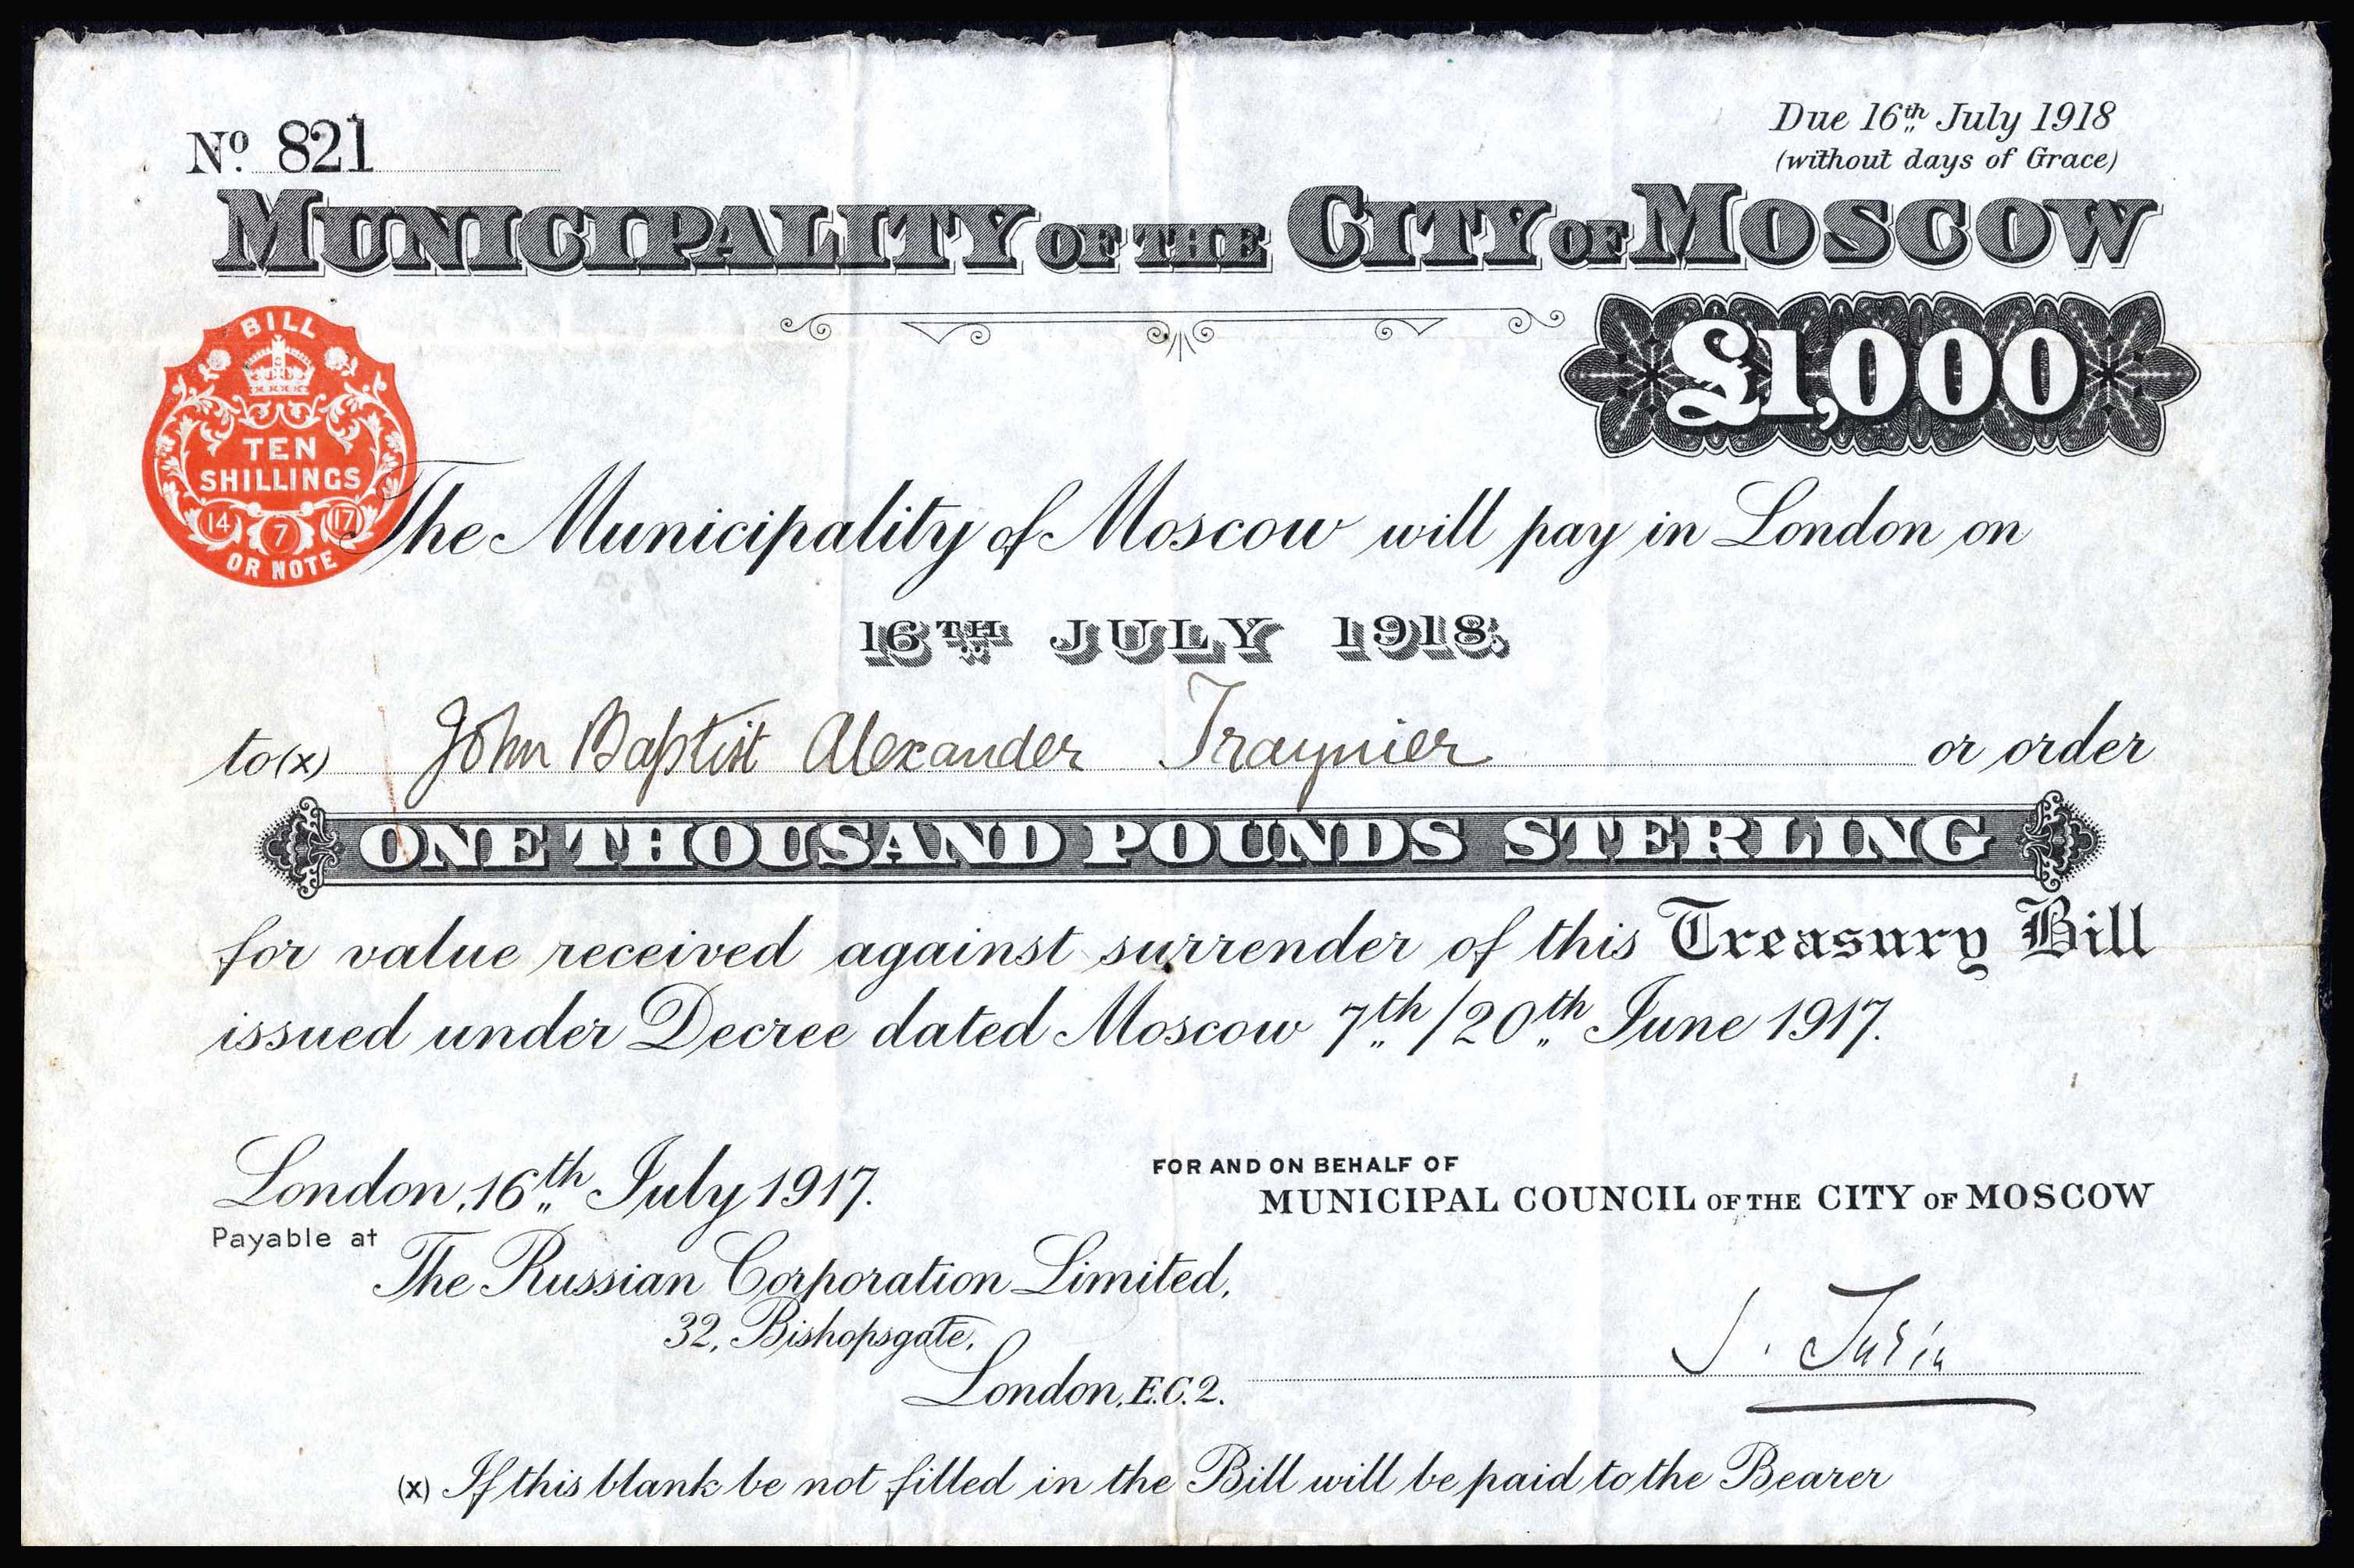 Nº 821
Due 16th July 1918
(without days of Grace)
MUNICIPALITY OF THE CITY OF MOSCOW
£1,000
BILL
TEN
SHILLINGS
14 7 17
OR NOTE
The Municipality of Moscow will pay in London on
16TH JULY 1918,
to (x) John Baptist Alexander Traynier or order
ONE THOUSAND POUNDS STERLING
for value received against surrender of this Treasury Bill
issued under Decree dated Moscow 7th/20th June 1917.
London, 16th July 1917.
Payable at
The Russian Corporation Limited,
32, Bishopsgate,
London, E.C.2.
FOR AND ON BEHALF OF
MUNICIPAL COUNCIL OF THE CITY OF MOSCOW
J. Turin
(x) If this blank be not filled in the Bill will be paid to the Bearer